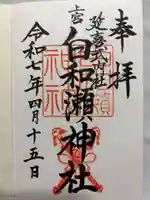 奉拝
延喜式内社
上宮
白和瀬神社
令和七年四月十五日